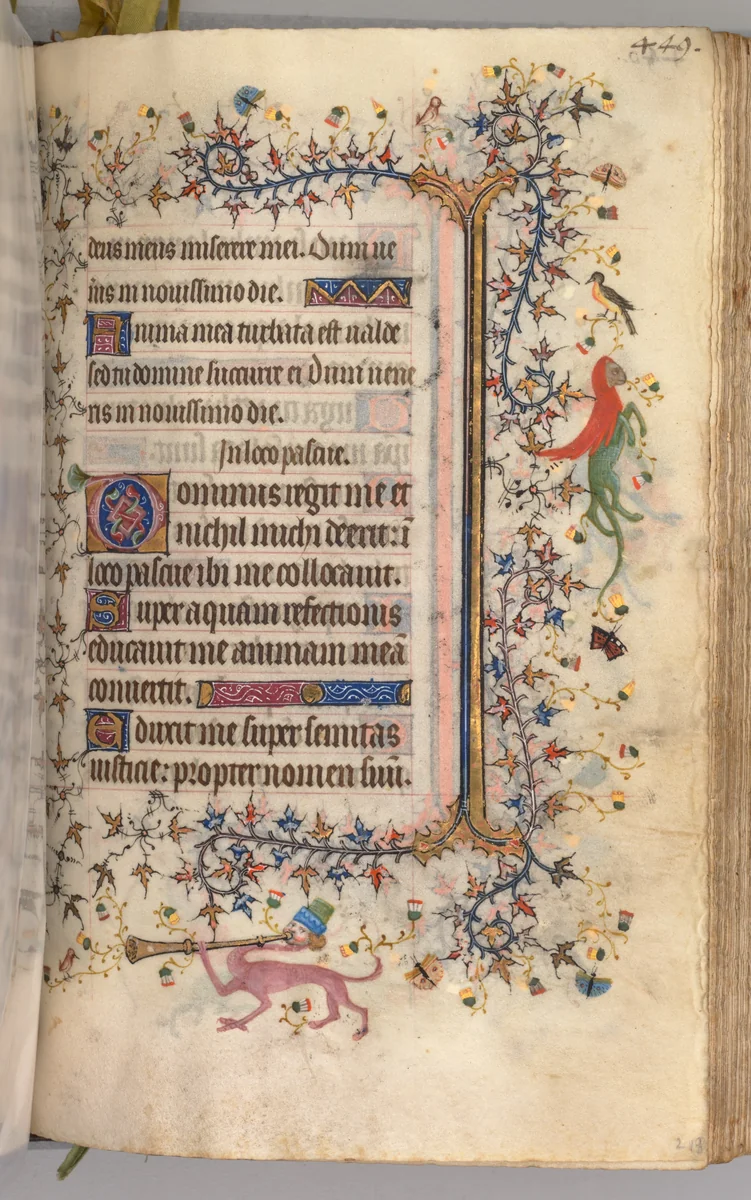 449.
deus meus miserere mei. Dum ue
nis in nouissimo die.
Anima mea turbata est ualde
sed tu domine succurre ei Dum uene
ris in nouissimo die.
In loco pascue.
Dominus regit me et
nichil michi deerit: ī
loco pascue ibi me collocauit.
Super aquam refectionis
educauit me animam meā
conuertit.
Eduxit me super semitas
iusticie: propter nomen suū.